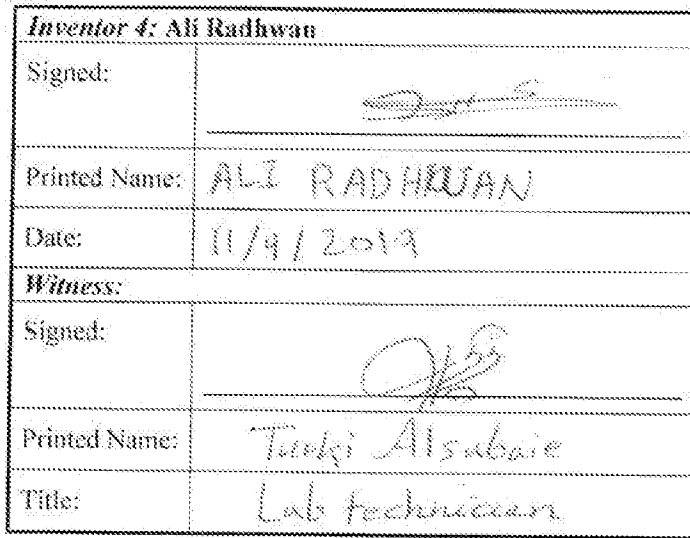 Inventor 4: Ali Radhwan
Signed:
Printed Name: ALI RADHWAN
Date: 11/9/2019
Witness:
Signed:
Printed Name: Turki Alsubaie
Title: Lab technician